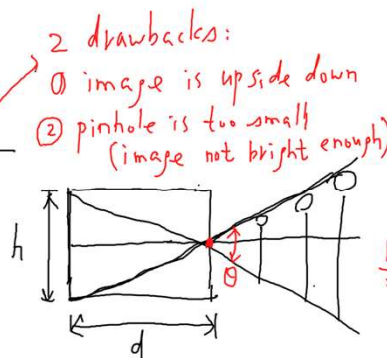 2 drawbacks:
① image is upside down
② pinhole is too small
(image not bright enough)
h
θ
d